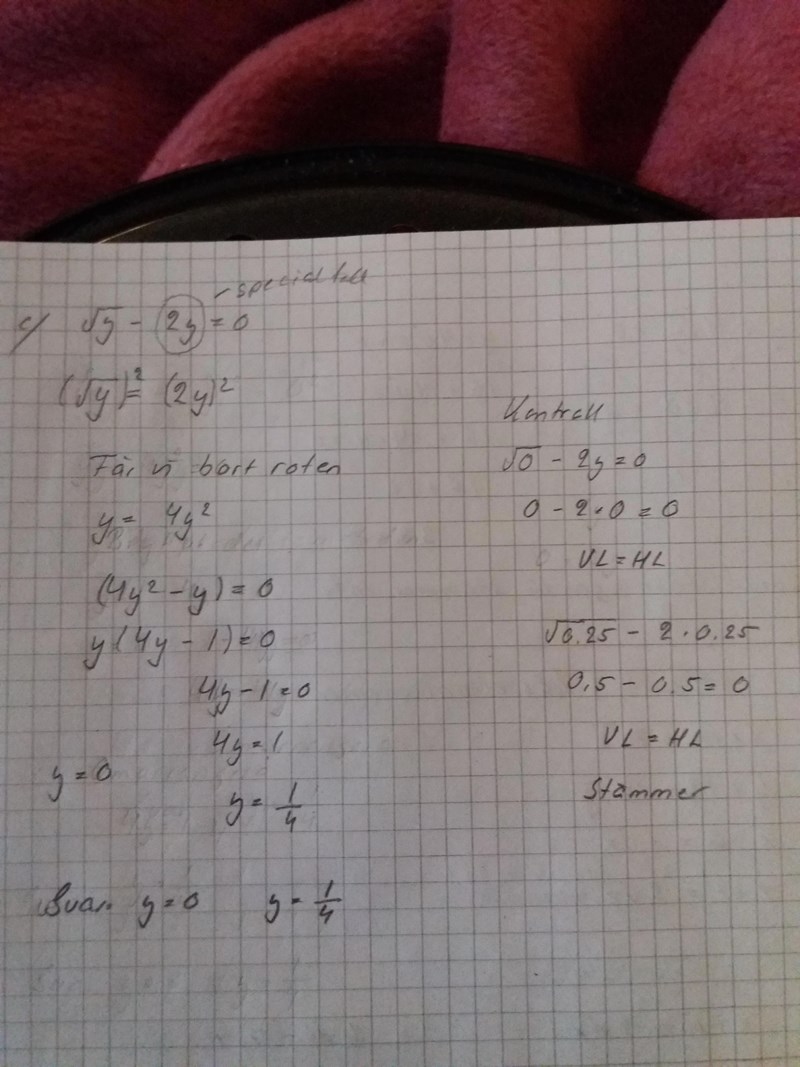 specialfall
c) √y - 2y = 0
(√y)² = (2y)²
Får vi bort roten
y = 4y²
(4y² - y) = 0
y(4y - 1) = 0
4y - 1 = 0
4y = 1
y = 0
y = 1/4
Svar y = 0 y = 1/4
Kontroll
√0 - 2y = 0
0 - 2·0 = 0
VL = HL
√0.25 - 2·0.25
0,5 - 0,5 = 0
VL = HL
Stämmer